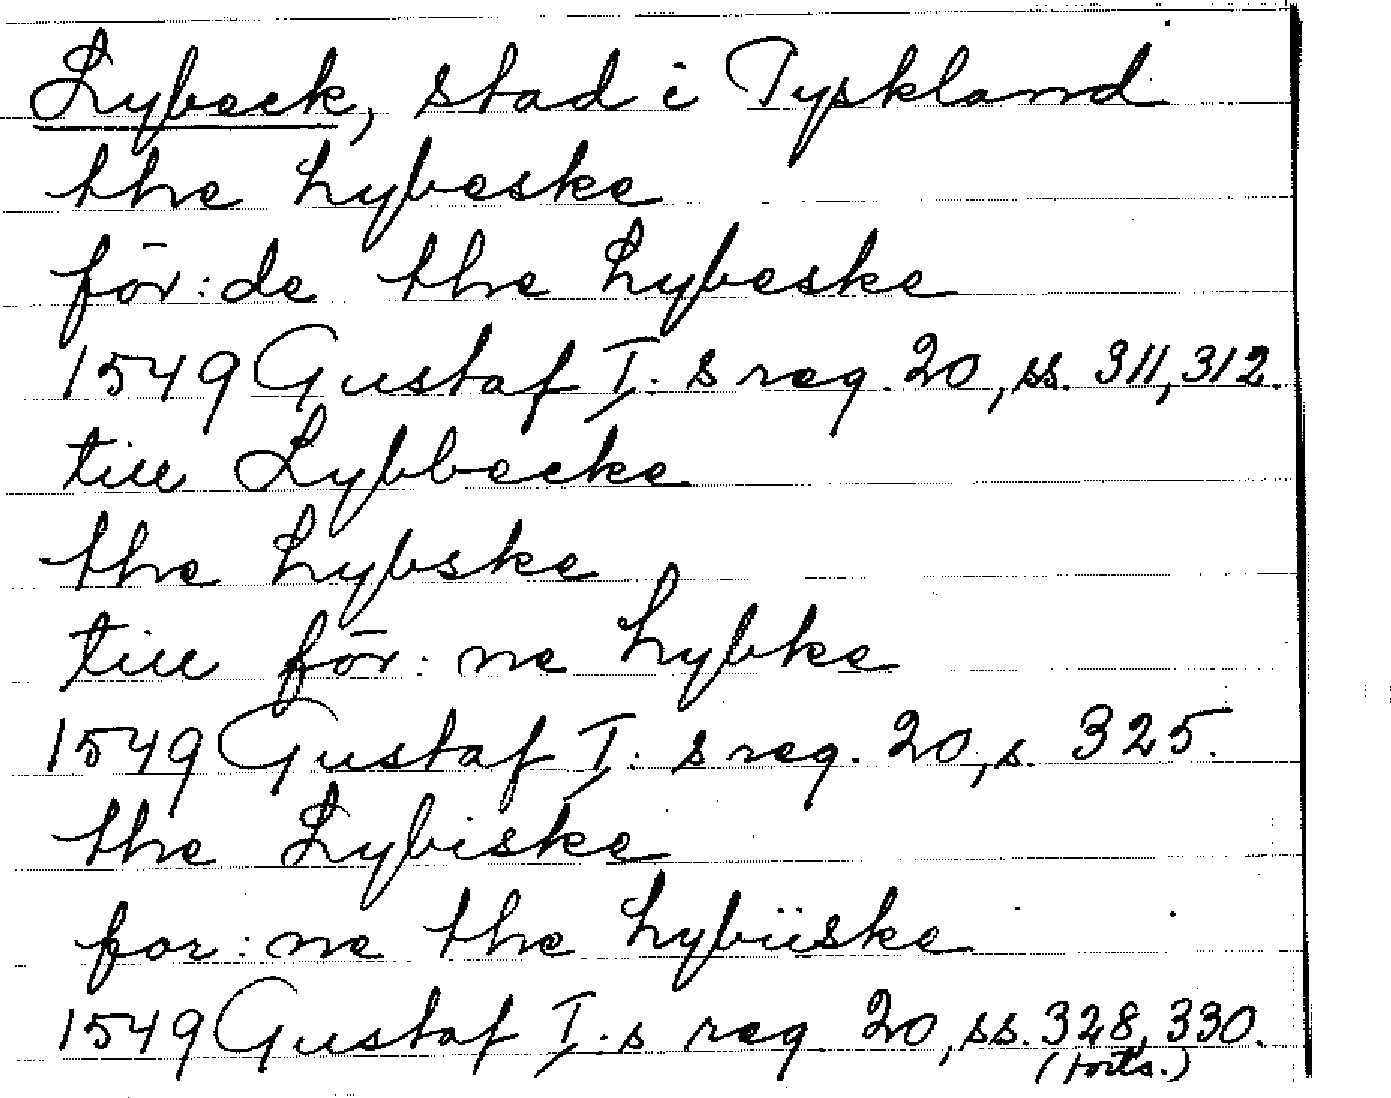 Lybeck, stad i Tyskland
the Lybeske
för:de the Lybeske
1549 Gustaf I:s reg. 20, ss. 311, 312.
till Lybbecke
the Lybske
till för:ne Lybke
1549 Gustaf I:s reg. 20, s. 325.
the Lybiske
for:ne the Lybiiske
1549 Gustaf I:s reg. 20, ss. 328, 330.
(forts.)